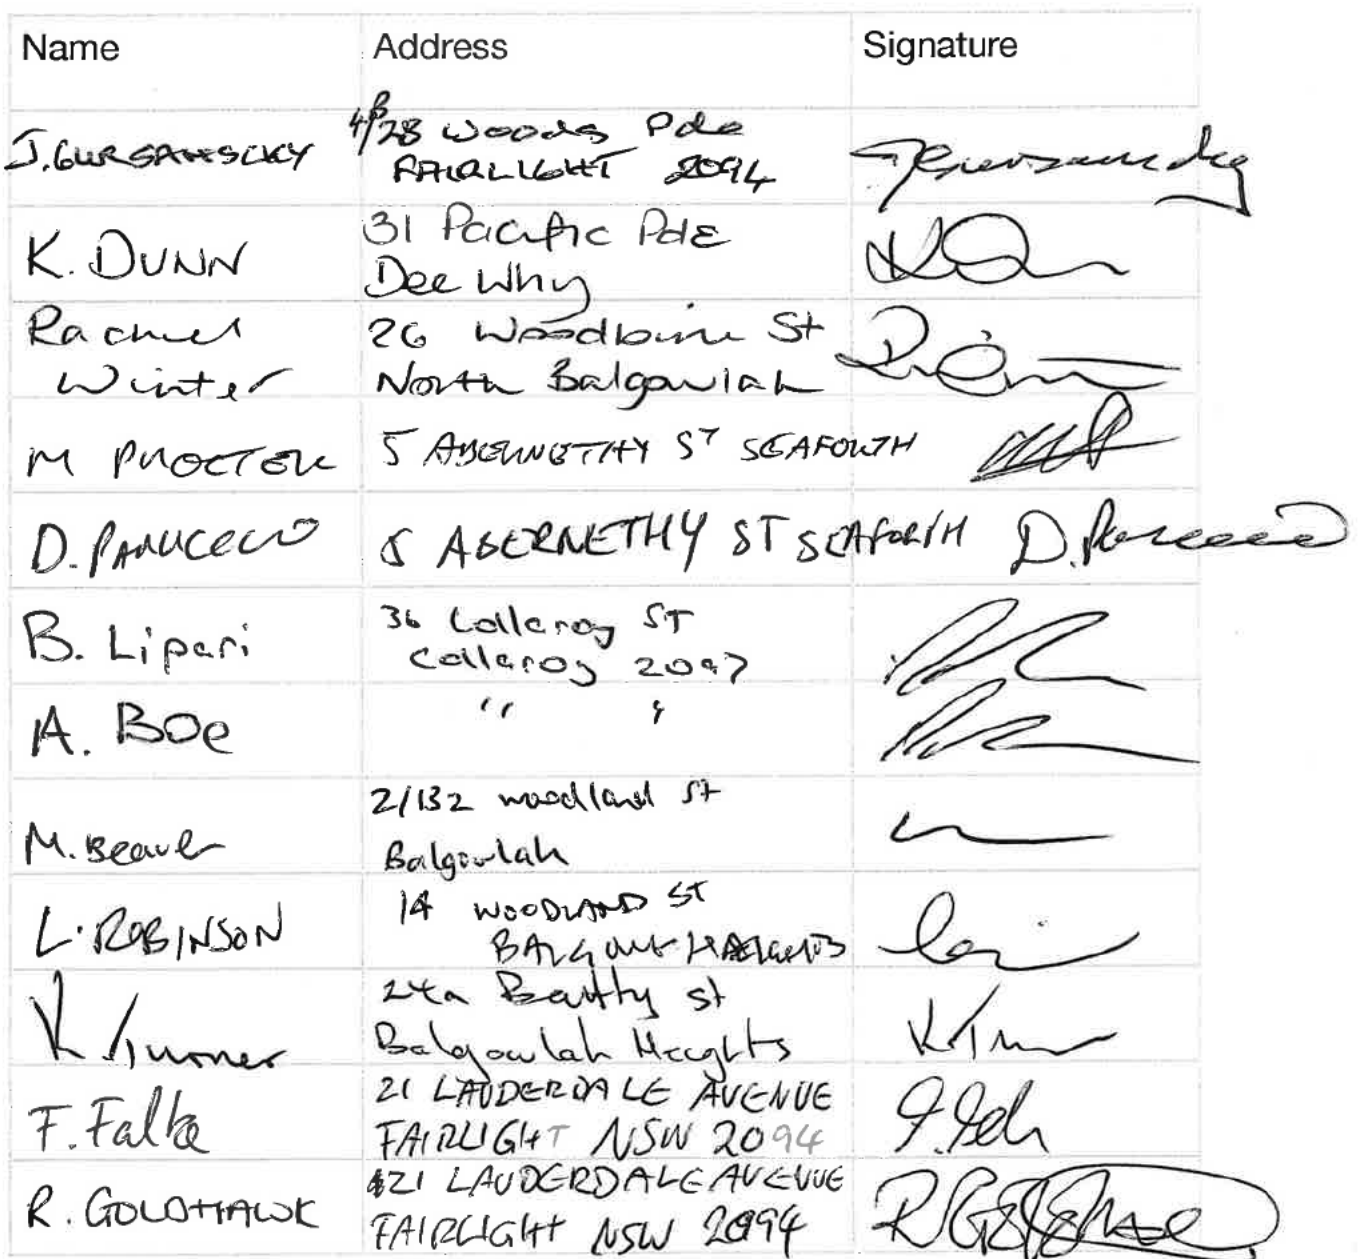 Name Address Signature
J. GURSANSCKY 4B/28 Woods Pde
FAIRLIGHT 2094
K. DUNN 31 Pacific Pde
Dee Why
Rachel 26 Woodbine St
Winter North Balgowlah
M PROCTER 5 ABERNETHY ST SEAFORTH
D. 5 ABERNETHY ST SEAFORTH D.
B. Lipari 36 Collaroy ST
Collaroy 2097
A. Boe " "
M. Beaver 2/132 woodland St
Balgowlah
L. ROBINSON 14 WOODLAND ST
K Turner 24a St
Balgowlah Heights
F. Falke 21 LAUDERDALE AVENUE
FAIRLIGHT NSW 2094
R. GOLDHAWK 21 LAUDERDALE AVENUE
FAIRLIGHT NSW 2094